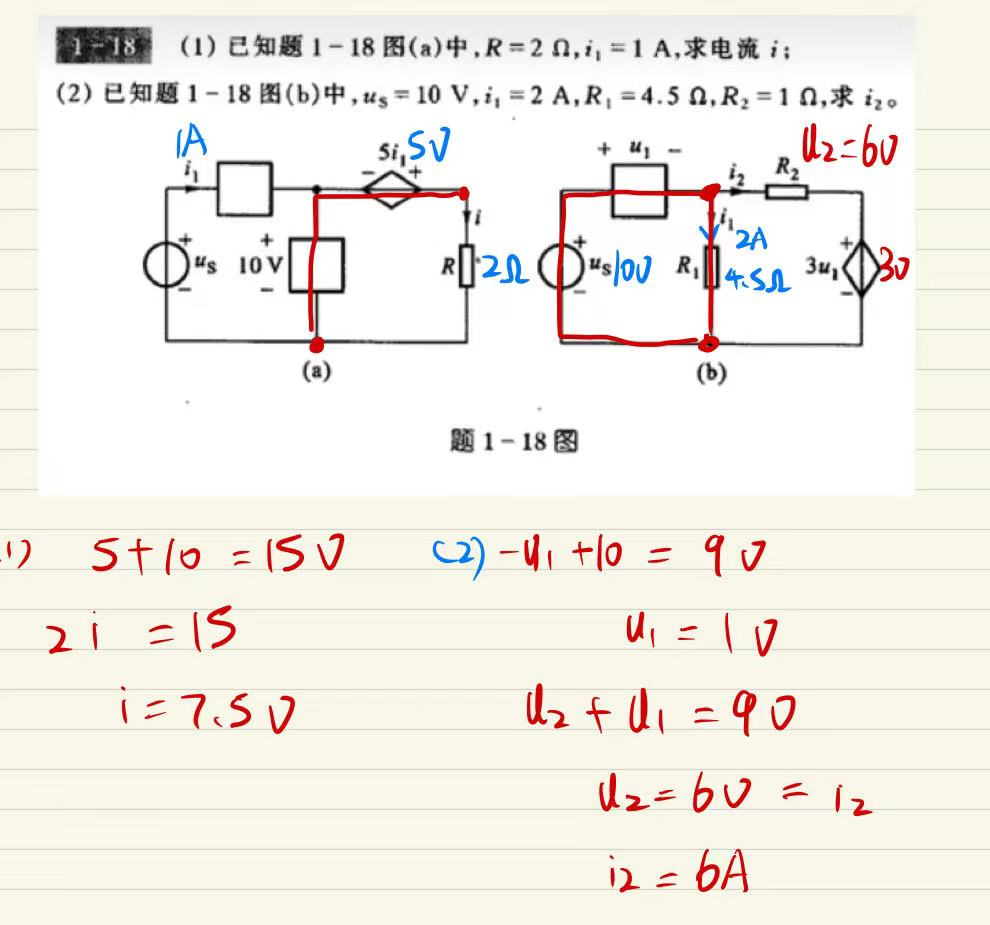 1-18 (1) 已知题 1-18 图(a)中,R=2 Ω,i₁=1 A,求电流 i;
(2) 已知题 1-18 图(b)中,uS=10 V,i₁=2 A,R₁=4.5 Ω,R₂=1 Ω,求 i₂。
1A
i₁
5i₁
5V
- +
+ u₁ -
i₂
R₂
U₂=6V
+
uS
-
+
10 V
-
i
R
2Ω
+
uS
-
10V
R₁
i₁
2A
4.5Ω
+
3u₁
-
3V
(a)
(b)
题 1-18 图
1) 5+10 =15V
2i =15
i=7.5V
(2) -U₁+10 = 9V
U₁=1V
U₂+U₁=9V
U₂=6V = i₂
i₂=6A